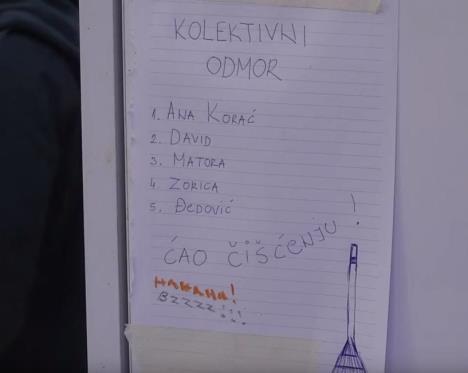 KOLEKTIVNI
ODMOR
1. ANA KORAĆ
2. DAVID
3. MATORA
4. ZORICA
5. ĐEDOVIĆ
ĆAO ČIŠĆENJU!
HAHAHA!
BZZZZ!!!